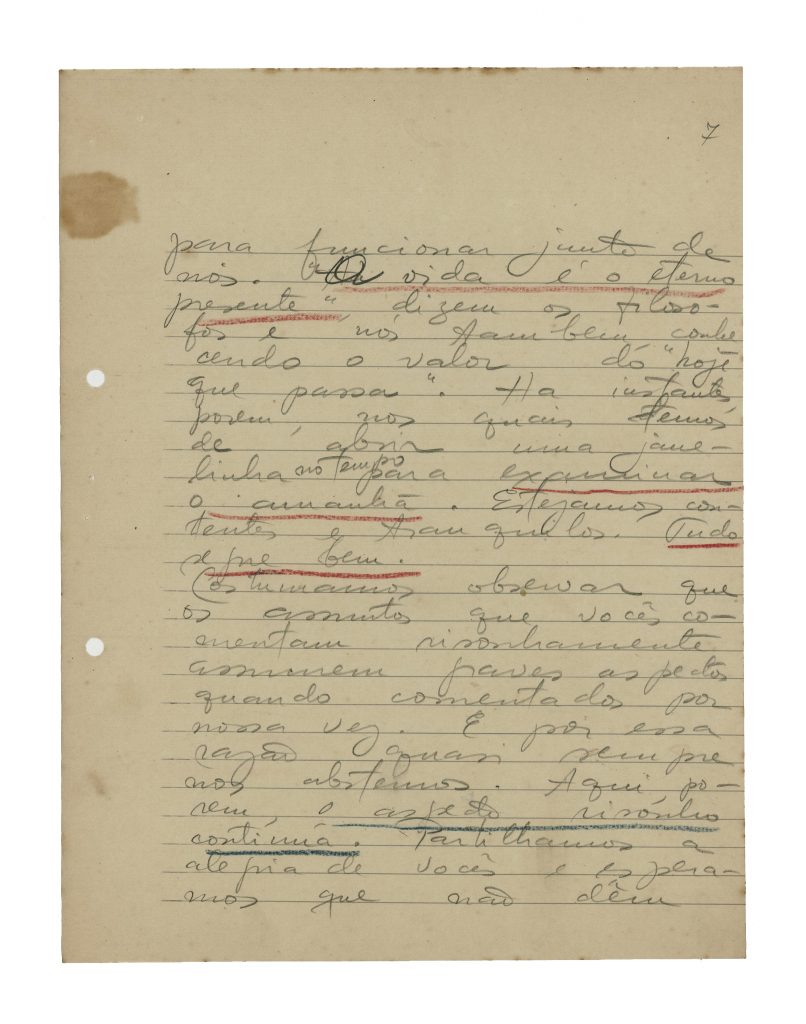 7
para funcionar junto de
nós. "A vida é o eterno
presente" dizem os filoso-
fos e nós tambem conhe
cendo o valor do "hoje
que passa". Ha instantes
porem, nos quais temos
de abrir uma jane-
linha no tempo para examinar
o amanhã. Estejamos con-
tentes e tranquilos. Tudo
segue bem.
Costumamos observar que
os assuntos que vocês co-
mentam risonhamente
assumem graves aspectos
quando comentados por
nossa vez. E por essa
razão quasi sempre
nos abstemos. Aqui po-
rem, o aspecto risonho
continúa. Partilhamos a
alegria de vocês e espera-
mos que não dêem